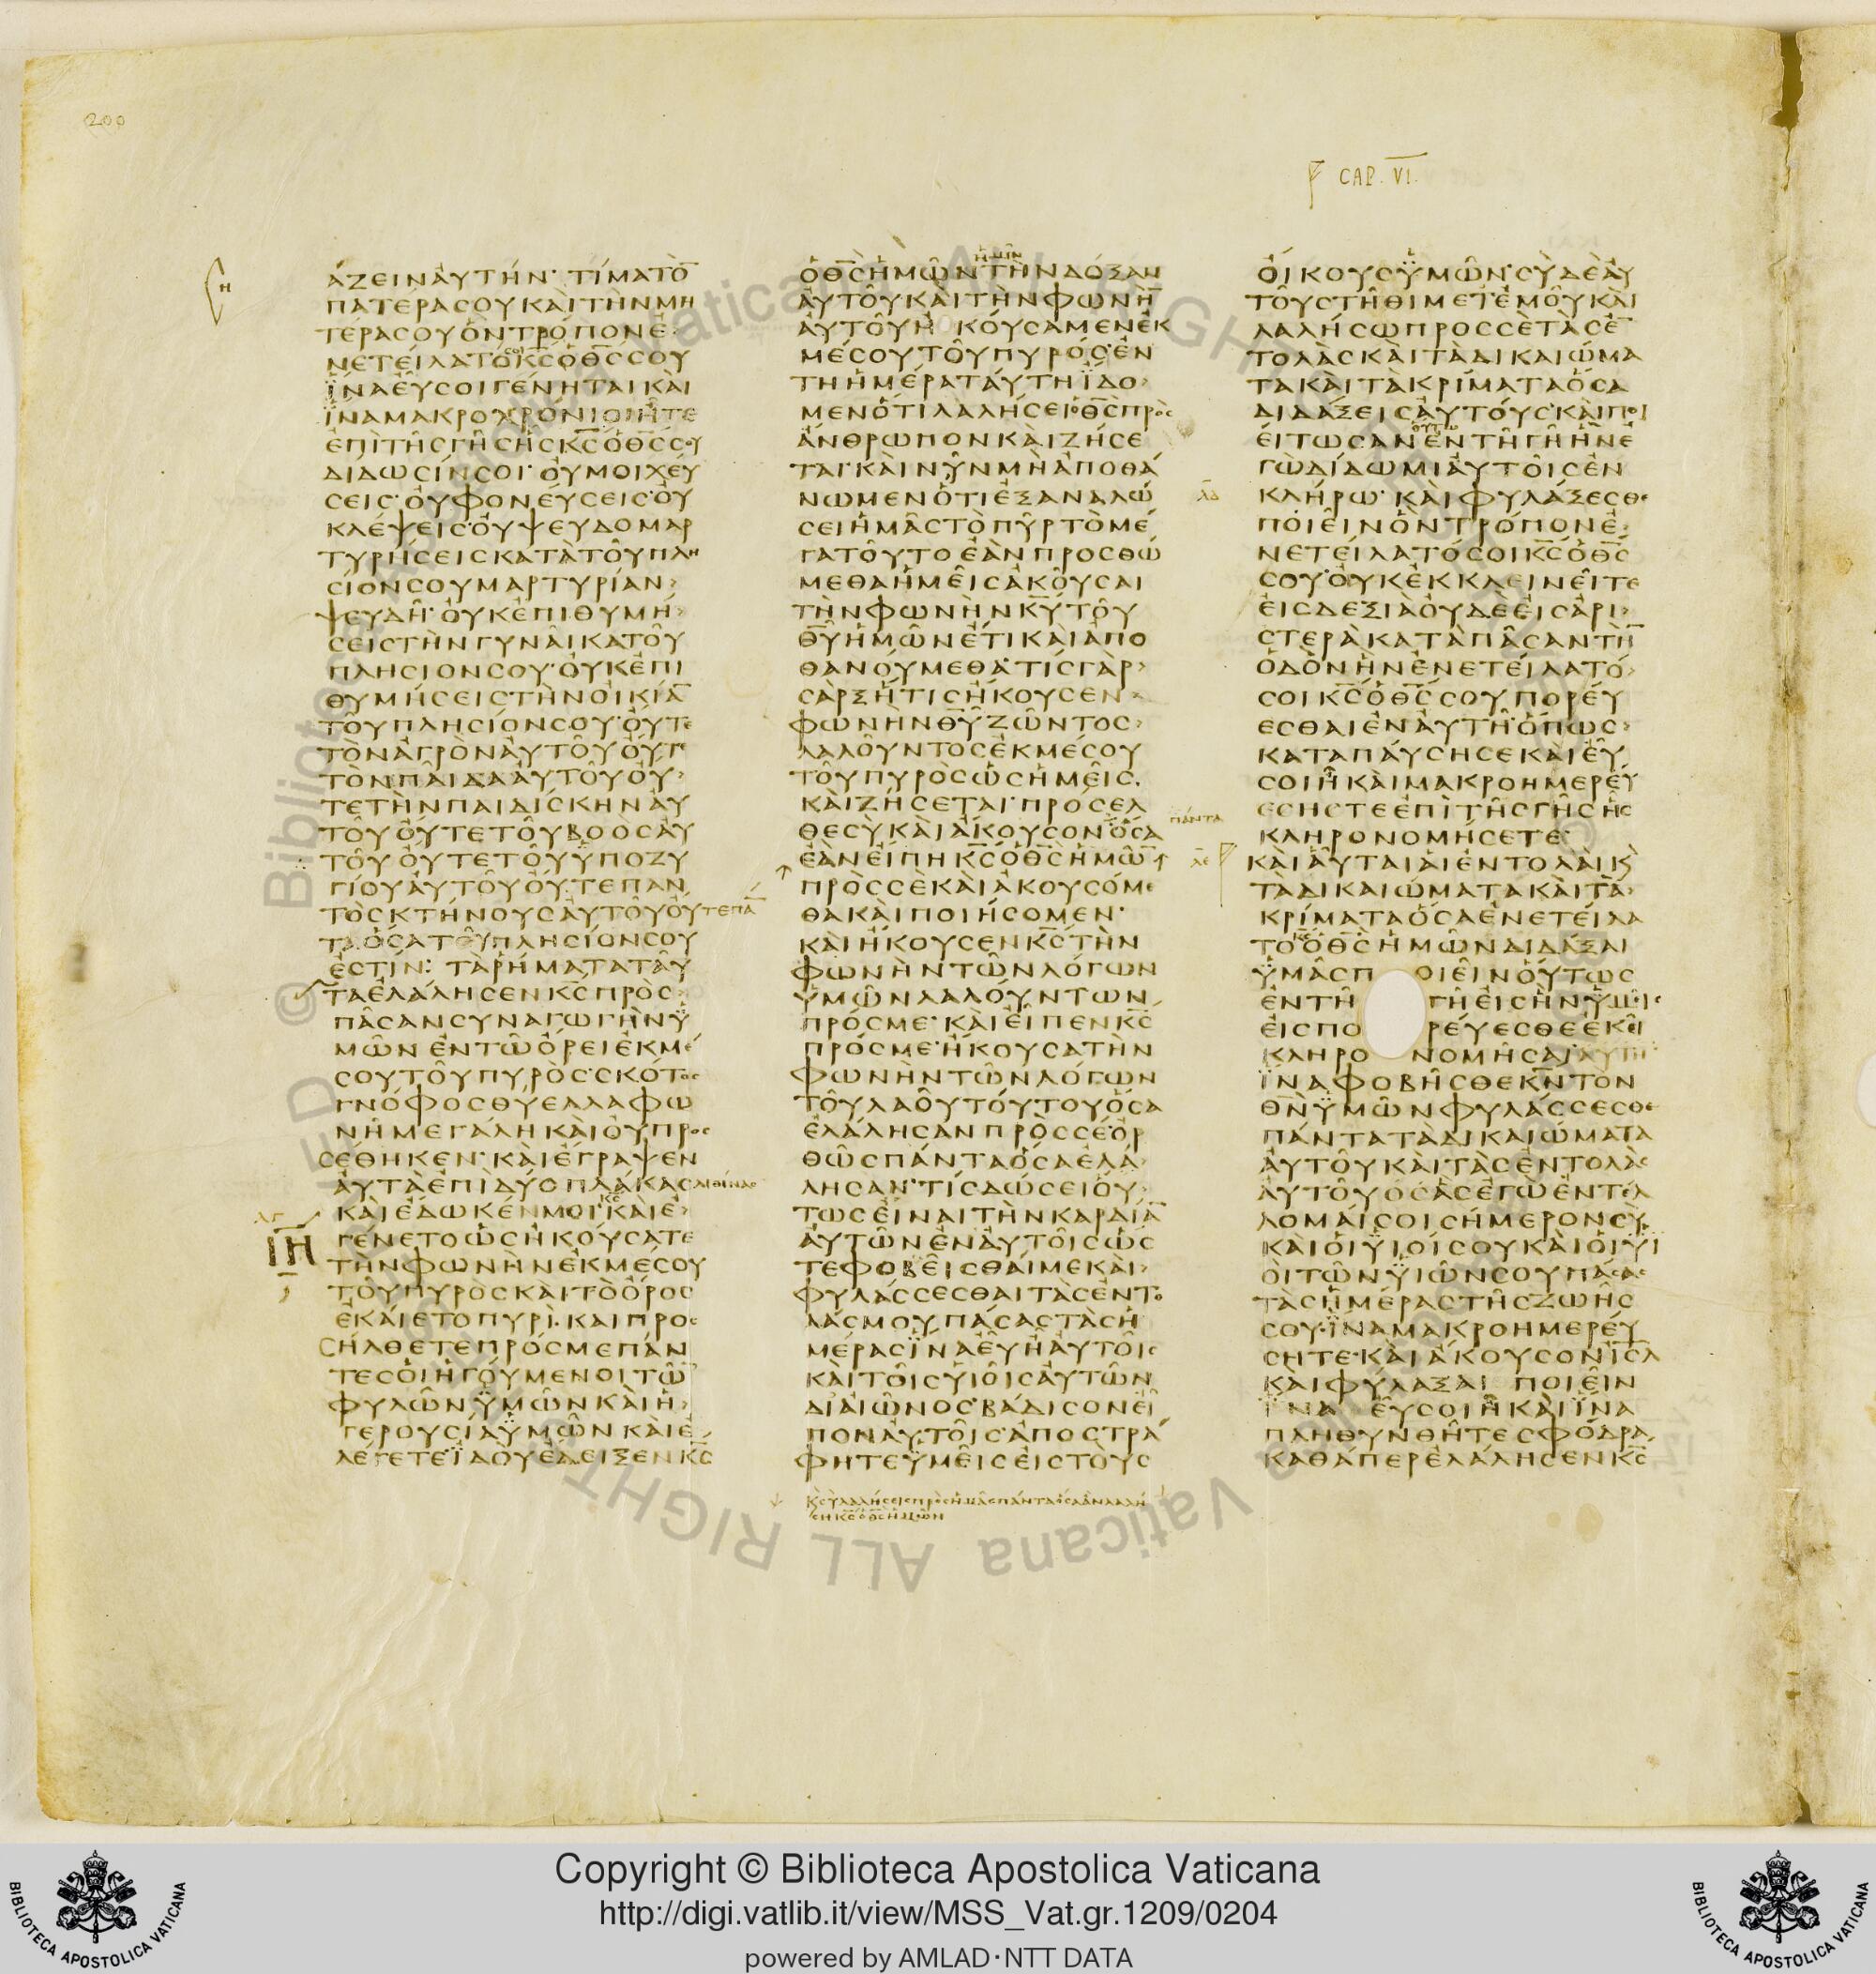 200
CAP. VI.
ΑΖΕΙΝΑΥΤΗΝ· ΤΙΜΑΤΟ̅
ΠΑΤΕΡΑΣΟΥΚΑΙΤΗΝΜΗ
ΤΕΡΑΣΟΥΟΝΤΡΟΠΟΝΕ
ΝΕΤΕΙΛΑΤΟΚ̅Σ̅ΟΘ̅Σ̅ΣΟΥ
ΪΝΑΕΥΣΟΙΓΕΝΗΤΑΙΚΑΙ
ΪΝΑΜΑΚΡΟΧΡΟΝΙΟΙΗΤΕ
ΕΠΙΤΗΣΓΗΣΗΣΚ̅Σ̅ΟΘ̅Σ̅ΣΟΥ
ΔΙΔΩΣΙΝΣΟΙ· ΟΥΜΟΙΧΕΥ
ΣΕΙΣ· ΟΥΦΟΝΕΥΣΕΙΣ· ΟΥ
ΚΛΕΨΕΙΣ· ΟΥΨΕΥΔΟΜΑΡ
ΤΥΡΗΣΕΙΣΚΑΤΑΤΟΥΠΛΗ
ΣΙΟΝΣΟΥΜΑΡΤΥΡΙΑΝ
ΨΕΥΔΗ· ΟΥΚΕΠΙΘΥΜΗ
ΣΕΙΣΤΗΝΓΥΝΑΙΚΑΤΟΥ
ΠΛΗΣΙΟΝΣΟΥ· ΟΥΚΕΠΙ
ΘΥΜΗΣΕΙΣΤΗΝΟΙΚΙΑ̅
ΤΟΥΠΛΗΣΙΟΝΣΟΥ· ΟΥΤΕ
ΤΟΝΑΓΡΟΝΑΥΤΟΥΟΥΤΕ
ΤΟΝΠΑΙΔΑΑΥΤΟΥΟΥ
ΤΕΤΗΝΠΑΙΔΙΣΚΗΝΑΥ
ΤΟΥΟΥΤΕΤΟΥΒΟΟΣΑΥ
ΤΟΥΟΥΤΕΤΟΥΫΠΟΖΥ
ΓΙΟΥΑΥΤΟΥΟΥΤΕΠΑΝ
ΤΟΣΚΤΗΝΟΥΣΑΥΤΟΥΟΥΤΕΠΑ̅
ΤΑΟΣΑΤΟΥΠΛΗΣΙΟΝΣΟΥ
ΕΣΤΙΝ: ΤΑΡΗΜΑΤΑΤΑΥ
ΤΑΕΛΑΛΗΣΕΝΚ̅Σ̅ΠΡΟΣ
ΠΑΣΑΝΣΥΝΑΓΩΓΗΝΫ
ΜΩΝΕΝΤΩΟΡΕΙΕΚΜΕ
ΣΟΥΤΟΥΠΥΡΟΣ· ΣΚΟΤΟΣ
ΓΝΟΦΟΣΘΥΕΛΛΑΦΩ
ΝΗΜΕΓΑΛΗΚΑΙΟΥΠΡΟΣ
ΣΕΘΗΚΕΝ· ΚΑΙΕΓΡΑΨΕΝ
ΑΥΤΑΕΠΙΔΥΟΠΛΑΚΑΣΛΙΘΙΝΑΣ
ΚΑΙΕΔΩΚΕΝΜΟΙΚΑΙΕ
ΓΕΝΕΤΟΩΣΗΚΟΥΣΑΤΕ
ΤΗΝΦΩΝΗΝΕΚΜΕΣΟΥ
ΤΟΥΠΥΡΟΣΚΑΙΤΟΟΡΟΣ
ΕΚΑΙΕΤΟΠΥΡΙ· ΚΑΙΠΡΟΣ
ΣΗΛΘΕΤΕΠΡΟΣΜΕΠΑΝ
ΤΕΣΟΙΗΓΟΥΜΕΝΟΙΤΩ̅
ΦΥΛΩΝΫΜΩΝΚΑΙΗ
ΓΕΡΟΥΣΙΑΫΜΩΝΚΑΙΕ
ΛΕΓΕΤΕΪΔΟΥΕΔΕΙΞΕΝΚ̅Σ̅
ΗΜΙΝ
ΟΘ̅Σ̅ΗΜΩΝΤΗΝΔΟΞΑΝ
ΑΥΤΟΥΚΑΙΤΗΝΦΩΝΗ̅
ΑΥΤΟΥΗΚΟΥΣΑΜΕΝΕΚ
ΜΕΣΟΥΤΟΥΠΥΡΟΣ· ΕΝ
ΤΗΗΜΕΡΑΤΑΥΤΗΪΔΟ
ΜΕΝΟΤΙΛΑΛΗΣΕΙΟΘ̅Σ̅ΠΡΟΣ
ΑΝΘΡΩΠΟΝΚΑΙΖΗΣΕ
ΤΑΙ· ΚΑΙΝΥΝΜΗΑΠΟΘΑ
ΝΩΜΕΝΟΤΙΕΞΑΝΑΛΩ
ΣΕΙΗΜΑΣΤΟΠΥΡΤΟΜΕ
ΓΑΤΟΥΤΟΕΑΝΠΡΟΣΘΩ
ΜΕΘΑΗΜΕΙΣΑΚΟΥΣΑΙ
ΤΗΝΦΩΝΗΝΚ̅Υ̅ΤΟΥ
Θ̅Υ̅ΗΜΩΝΕΤΙΚΑΙΑΠΟ
ΘΑΝΟΥΜΕΘΑ· ΤΙΣΓΑΡ
ΣΑΡΞΗΤΙΣΗΚΟΥΣΕΝ
ΦΩΝΗΝΘ̅Υ̅ΖΩΝΤΟΣ
ΛΑΛΟΥΝΤΟΣΕΚΜΕΣΟΥ
ΤΟΥΠΥΡΟΣΩΣΗΜΕΙΣ
ΚΑΙΖΗΣΕΤΑΙ· ΠΡΟΣΕΛ
ΘΕΣΥΚΑΙΑΚΟΥΣΟΝΟΣΑ ΠΑΝΤΑ
ΕΑΝΕΙΠΗΚ̅Σ̅ΟΘ̅Σ̅ΗΜΩ̅
ΠΡΟΣΣΕΚΑΙΑΚΟΥΣΟΜΕ
ΘΑΚΑΙΠΟΙΗΣΟΜΕΝ·
ΚΑΙΗΚΟΥΣΕΝΚ̅Σ̅ΤΗΝ
ΦΩΝΗΝΤΩΝΛΟΓΩΝ
ΫΜΩΝΛΑΛΟΥΝΤΩΝ
ΠΡΟΣΜΕ· ΚΑΙΕΙΠΕΝΚ̅Σ̅
ΠΡΟΣΜΕ· ΗΚΟΥΣΑΤΗΝ
ΦΩΝΗΝΤΩΝΛΟΓΩΝ
ΤΟΥΛΑΟΥΤΟΥΤΟΥΟΣΑ
ΕΛΑΛΗΣΑΝΠΡΟΣΣΕ· ΟΡ
ΘΩΣΠΑΝΤΑΟΣΑΕΛΑ
ΛΗΣΑΝ· ΤΙΣΔΩΣΕΙΟΥ
ΤΩΣΕΙΝΑΙΤΗΝΚΑΡΔΙΑ̅
ΑΥΤΩΝΕΝΑΥΤΟΙΣΩΣ
ΤΕΦΟΒΕΙΣΘΑΙΜΕΚΑΙ
ΦΥΛΑΣΣΕΣΘΑΙΤΑΣΕΝΤΟ
ΛΑΣΜΟΥΠΑΣΑΣΤΑΣΗ
ΜΕΡΑΣΪΝΑΕΥΗΑΥΤΟΙΣ
ΚΑΙΤΟΙΣΥΙΟΙΣΑΥΤΩΝ
ΔΙΑΙΩΝΟΣ· ΒΑΔΙΣΟΝΕΙ
ΠΟΝΑΥΤΟΙΣ· ΑΠΟΣΤΡΑ
ΦΗΤΕΫΜΕΙΣΕΙΣΤΟΥΣ
ΚΣΥΛΑΛΗΣΕΙΣΠΡΟΣΗΜΑΣΠΑΝΤΑΟΣΑΑΝΛΑΛΗ
ΣΗΚ̅Σ̅ΟΘ̅Σ̅ΗΜΩΝ
ΟΙΚΟΥΣΫΜΩΝ· ΣΥΔΕΑΥ
ΤΟΥΣΤΗΘΙΜΕΤΕΜΟΥΚΑΙ
ΛΑΛΗΣΩΠΡΟΣΣΕΤΑΣΕ̅
ΤΟΛΑΣΚΑΙΤΑΔΙΚΑΙΩΜΑ
ΤΑΚΑΙΤΑΚΡΙΜΑΤΑΟΣΑ
ΔΙΔΑΞΕΙΣΑΥΤΟΥΣ· ΚΑΙΠΟΙ
ΕΙΤΩΣΑΝΕΝΤΗΓΗΗΝΕ
ΓΩΔΙΔΩΜΙΑΥΤΟΙΣΕΝ
ΚΛΗΡΩ· ΚΑΙΦΥΛΑΞΕΣΘΕ
ΠΟΙΕΙΝΟΝΤΡΟΠΟΝΕ
ΝΕΤΕΙΛΑΤΟΣΟΙΚ̅Σ̅ΟΘ̅Σ̅
ΣΟΥ· ΟΥΚΕΚΚΛΕΙΝΕΙΤΕ
ΕΙΣΔΕΞΙΑΟΥΔΕΕΙΣΑΡΙ
ΣΤΕΡΑΚΑΤΑΠΑΣΑΝΤΗ̅
ΟΔΟΝΗΝΕΝΕΤΕΙΛΑΤΟ
ΣΟΙΚ̅Σ̅ΟΘ̅Σ̅ΣΟΥΠΟΡΕΥ
ΕΣΘΑΙΕΝΑΥΤΗ· ΟΠΩΣ
ΚΑΤΑΠΑΥΣΗΣΕΚΑΙΕΥ
ΣΟΙΗΚΑΙΜΑΚΡΟΗΜΕΡΕΥ
ΕΣΗΣΤΕΕΠΙΤΗΣΓΗΣΗΣ
ΚΛΗΡΟΝΟΜΗΣΕΤΕ·
ΚΑΙΑΥΤΑΙΑΙΕΝΤΟΛΑΙΚ
ΤΑΔΙΚΑΙΩΜΑΤΑΚΑΙΤΑ
ΚΡΙΜΑΤΑΟΣΑΕΝΕΤΕΙΛΑ
ΤΟΟΘ̅Σ̅ΗΜΩΝΔΙΔΑΞΑΙ
ΫΜΑΣΠ ΟΙΕΙΝΟΥΤΩΣ
ΕΝΤΗ ΓΗΕΙΣΗΝΫΜΕΙΣ
ΕΙΣΠΟ ΡΕΥΕΣΘΕΕΚΕΙ
ΚΛΗΡΟ ΝΟΜΗΣΑΙΑΥΤΗ
ΪΝΑΦΟΒΗΣΘΕΚ̅Ν̅ΤΟΝ
Θ̅Ν̅ΫΜΩΝΦΥΛΑΣΣΕΣΘΕ
ΠΑΝΤΑΤΑΔΙΚΑΙΩΜΑΤΑ
ΑΥΤΟΥΚΑΙΤΑΣΕΝΤΟΛΑΣ
ΑΥΤΟΥΟΣΑΣΕΓΩΕΝΤΕΛ
ΛΟΜΑΙΣΟΙΣΗΜΕΡΟΝΣΥ
ΚΑΙΟΙΫΙΟΙΣΟΥΚΑΙΟΙΫΙ
ΟΙΤΩΝΫΙΩΝΣΟΥΠΑΣΑΣ
ΤΑΣΗΜΕΡΑΣΤΗΣΖΩΗΣ
ΣΟΥ· ΪΝΑΜΑΚΡΟΗΜΕΡΕΥ
ΣΗΤΕ· ΚΑΙΑΚΟΥΣΟΝΙ̅Σ̅Λ̅
ΚΑΙΦΥΛΑΞΑΙ ΠΟΙΕΙΝ
ΪΝΑ ΕΥΣΟΙΗΚΑΙΪΝΑ
ΠΛΗΘΥΝΘΗΤΕΣΦΟΔΡΑ
ΚΑΘΑΠΕΡΕΛΑΛΗΣΕΝΚ̅Σ̅
Copyright © Biblioteca Apostolica Vaticana
http://digi.vatlib.it/view/MSS_Vat.gr.1209/0204
powered by AMLAD·NTT DATA
BIBLIOTECA APOSTOLICA VATICANA
BIBLIOTECA APOSTOLICA VATICANA